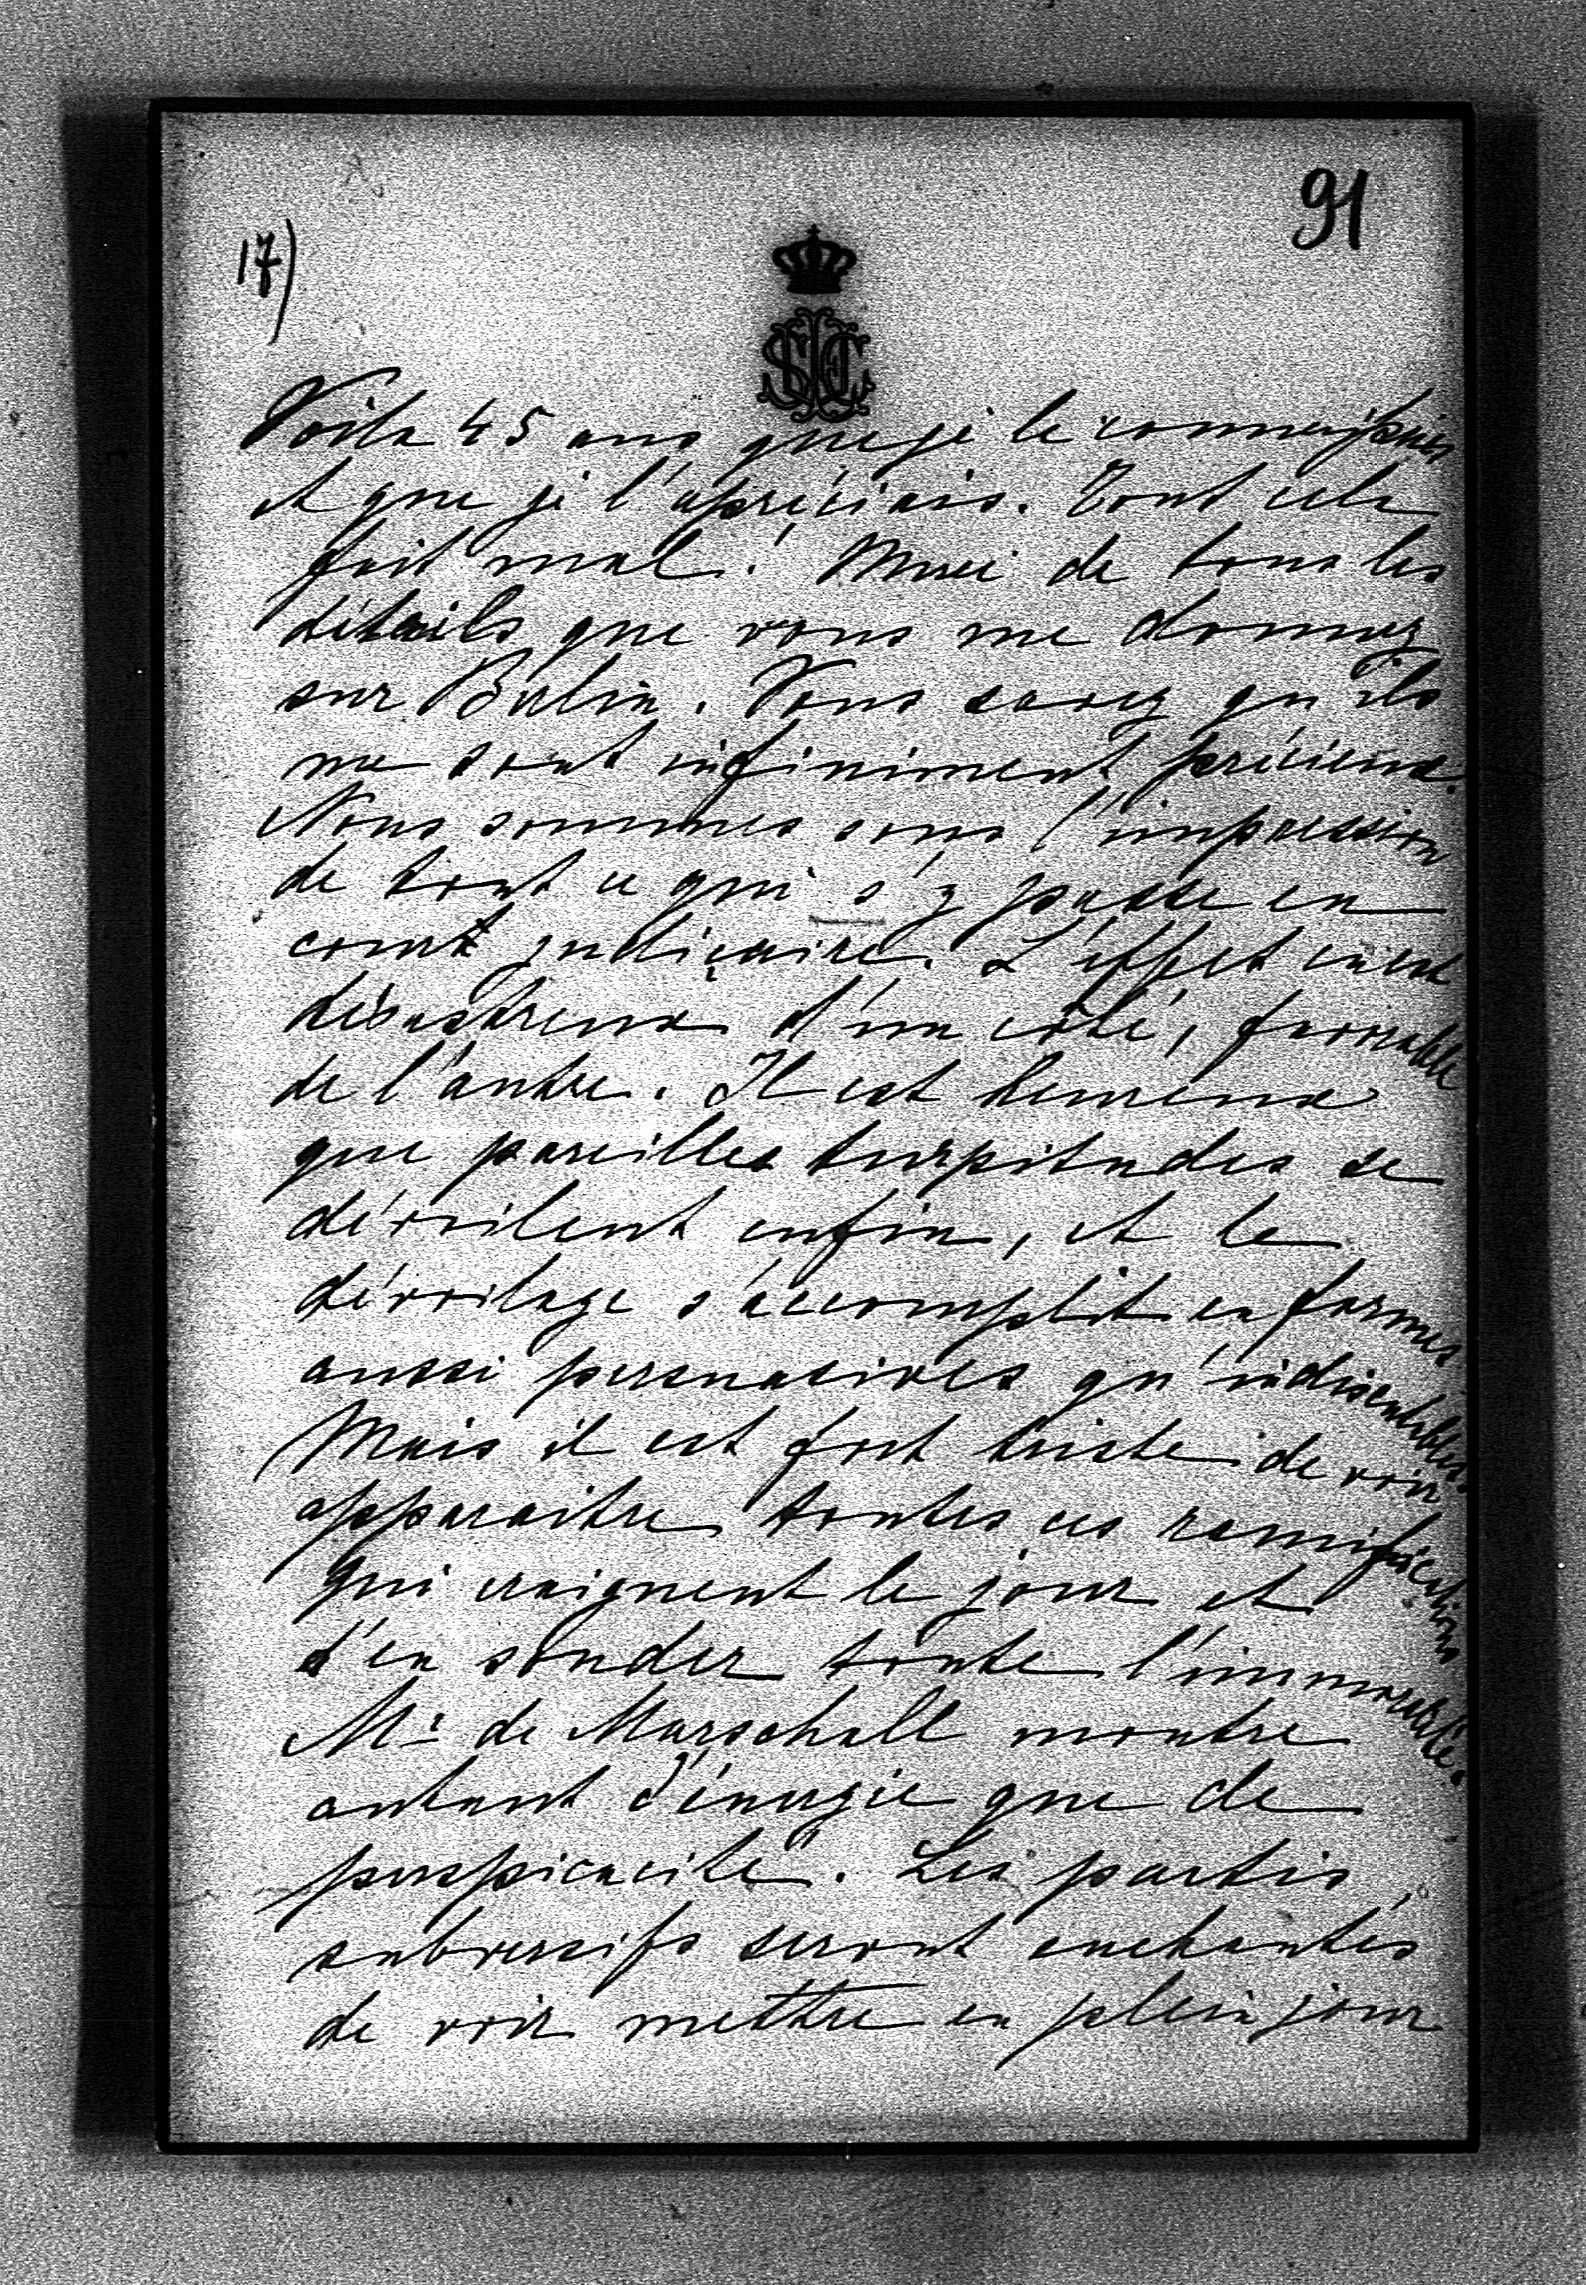 91
17)
Voila 45 ans que je le connaissais
et que je l'apréciais. Tout cela
fait mal! Merci de tous les
détails que vous me donnez
sur Berlin. Vous savez qu'ils
me sont infiniment précieux.
Nous sommes sous l'impression
de tout ce qui s'y passe en
court judicaire. L'effet en est
désastreux d'un côté, favorable
de l'autre. Il est heureux
que pareilles turpitudes se
dévoilent enfin, et le
dévoilage s'accomplit en formes
aussi persuasives qu'indiscutables.
Mais il est fort triste de voir
apparaitre toutes ces ramifications
qui craignent le jour et
d'en sonder toute l'immoralité.
Mr de Marschall montre
autant d'énergie que de
perspicacité. Les partis
subversifs seront enchantés
de voir mettre en plein jour